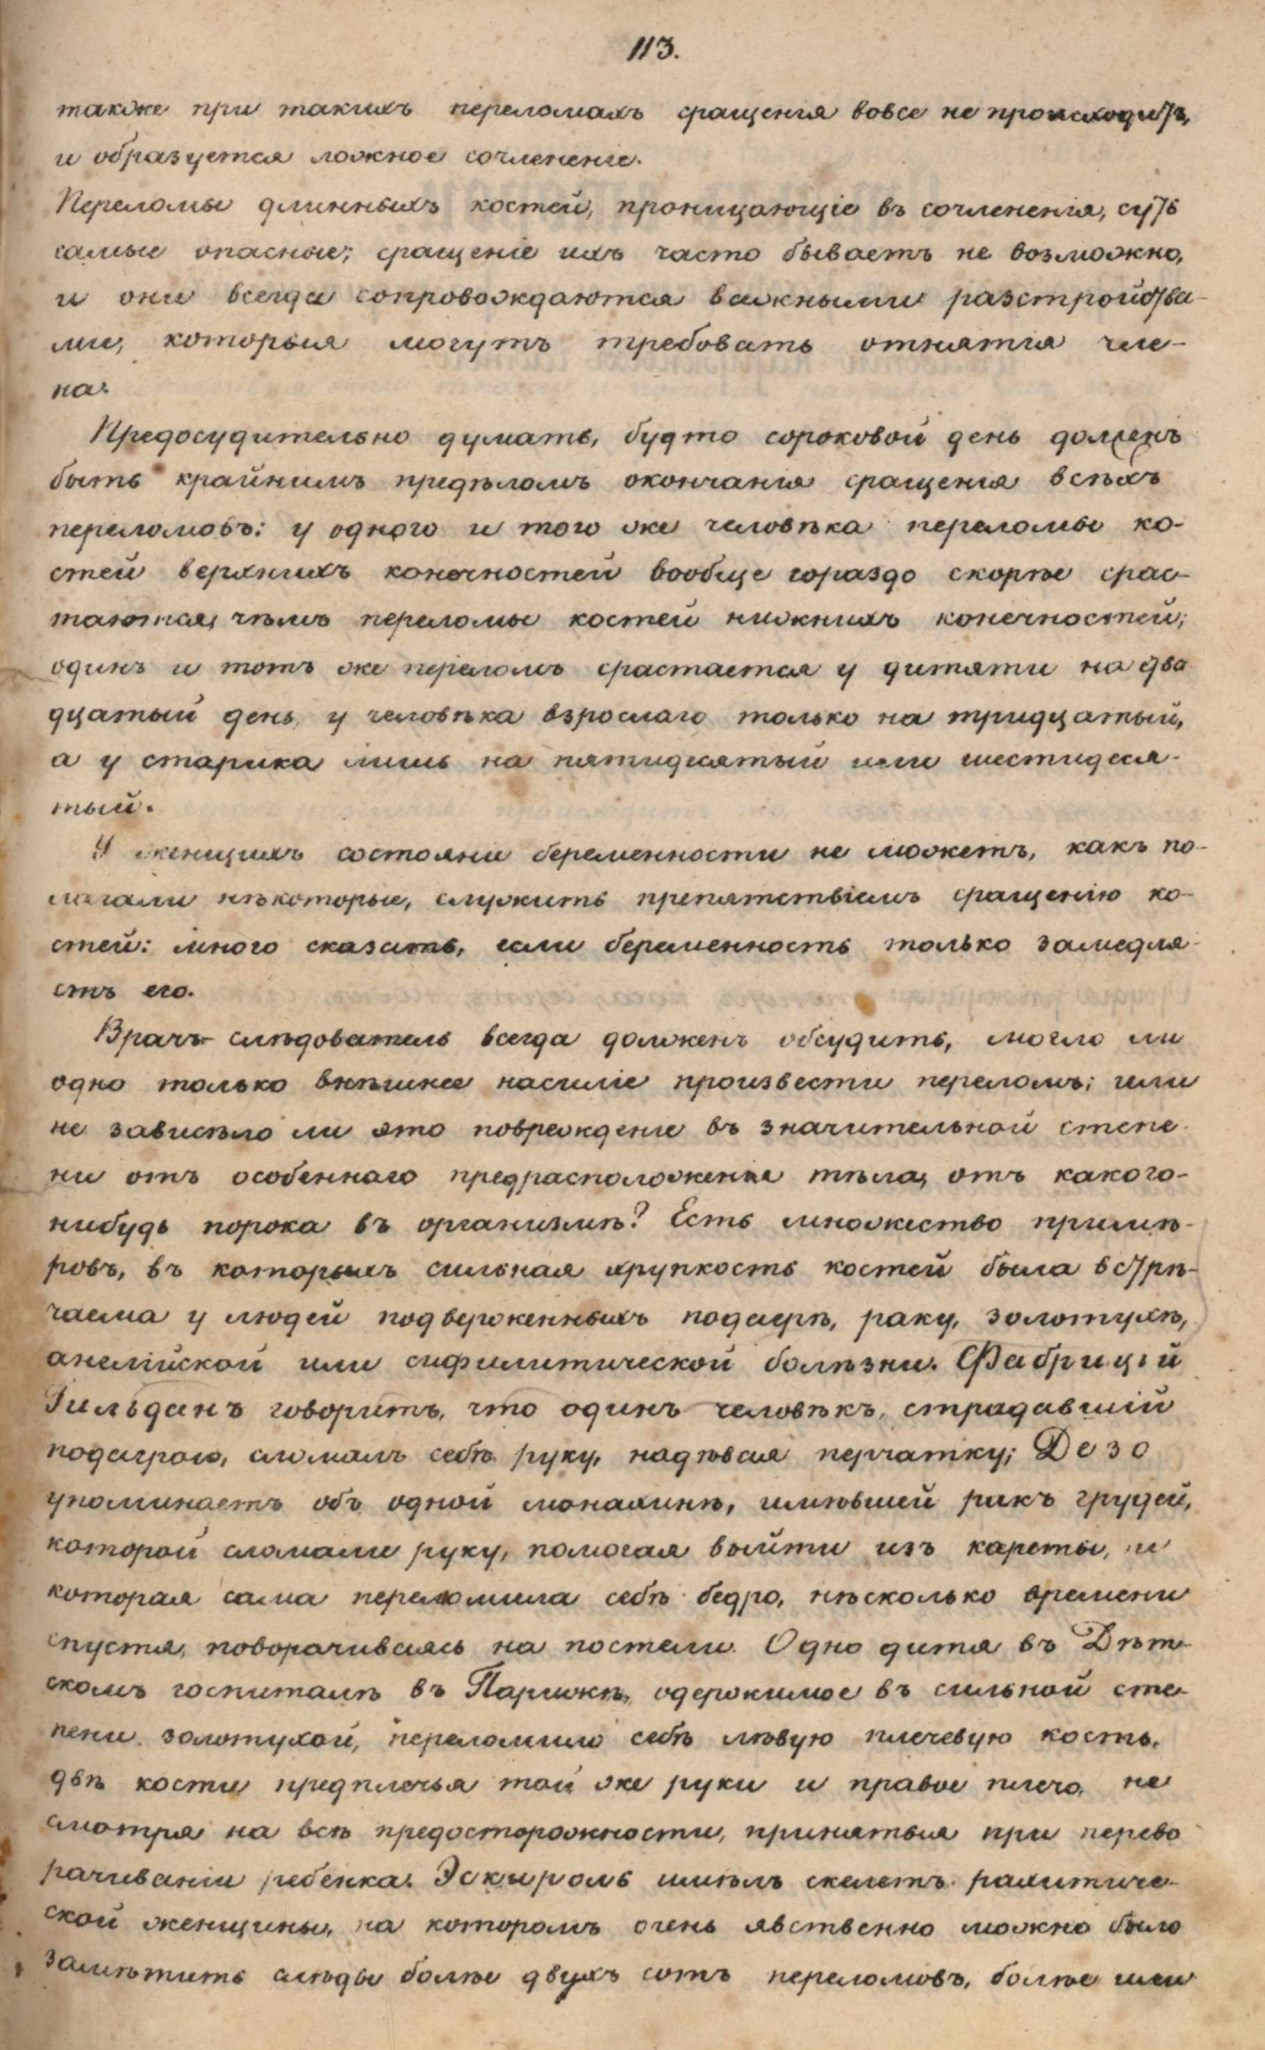 113.
также при такихъ переломахъ сращенія вовсе не происходитъ,
и образуется ложное сочлененіе.
Переломы длинныхъ костей, проницающіе въ сочлененія, суть
самые опасные; сращеніе ихъ часто бываетъ не возможно,
и они всегда сопровождаются важными разстройства-
ми, которыя могутъ требовать отнятія чле-
на.
Предосудительно думать, будто сороковой день долженъ
быть крайнимъ предѣломъ окончанія сращенія всѣхъ
переломовъ: у одного и того же человѣка переломы ко-
стей верхнихъ конечностей вообще гораздо скорѣе срас-
таются, чѣмъ переломы костей нижнихъ конечностей;
одинъ и тотъ же переломъ срастается у дитяти на два
дцатый день, у человѣка взрослаго только на тридцатый,
а у старика лишь на пятидесятый или шестидеся-
тый.
У женщинъ состояніе беременности не можетъ, какъ по-
лагали нѣкоторые, служить препятствіемъ сращенію ко-
стей: много сказать, если беременность только замедля-
етъ его.
Врачъ-слѣдователь всегда долженъ обсудить, могло ли
одно только внѣшнее насиліе произвести переломъ; или
не зависѣло ли это поврежденіе въ значительной степе-
ни отъ особеннаго предрасположенія тѣла, отъ какого-
нибудь порока въ организмѣ? Есть множество примѣ-
ровъ, въ которыхъ сильная хрупкость костей была встрѣ-
чаема у людей подверженныхъ подагрѣ, раку, золотухѣ,
англійской или сифилитической болѣзни. Фабрицій
Гильданъ говоритъ, что одинъ человѣкъ, страдавшій
подагрою, сломалъ себѣ руку, надѣвая перчатку; Дезо
упоминаетъ объ одной монахинѣ, имѣвшей ракъ грудей,
которой сломали руку, помогая выйти изъ кареты, и
которая сама переломила себѣ бедро, нѣсколько времени
спустя, поворачиваясь на постели. Одно дитя въ Дѣт-
скомъ госпиталѣ въ Парижѣ, одержимое въ сильной сте-
пени золотухой, переломило себѣ лѣвую плечевую кость,
двѣ кости предплечья той же руки и правое плечо, не
смотря на всѣ предосторожности, принятыя при перево
рачиваніи ребенка. Эскироль имѣлъ скелетъ рахитиче-
ской женщины, на которомъ очень явственно можно было
замѣтить слѣды болѣе двухъ сотъ переломовъ, болѣе или